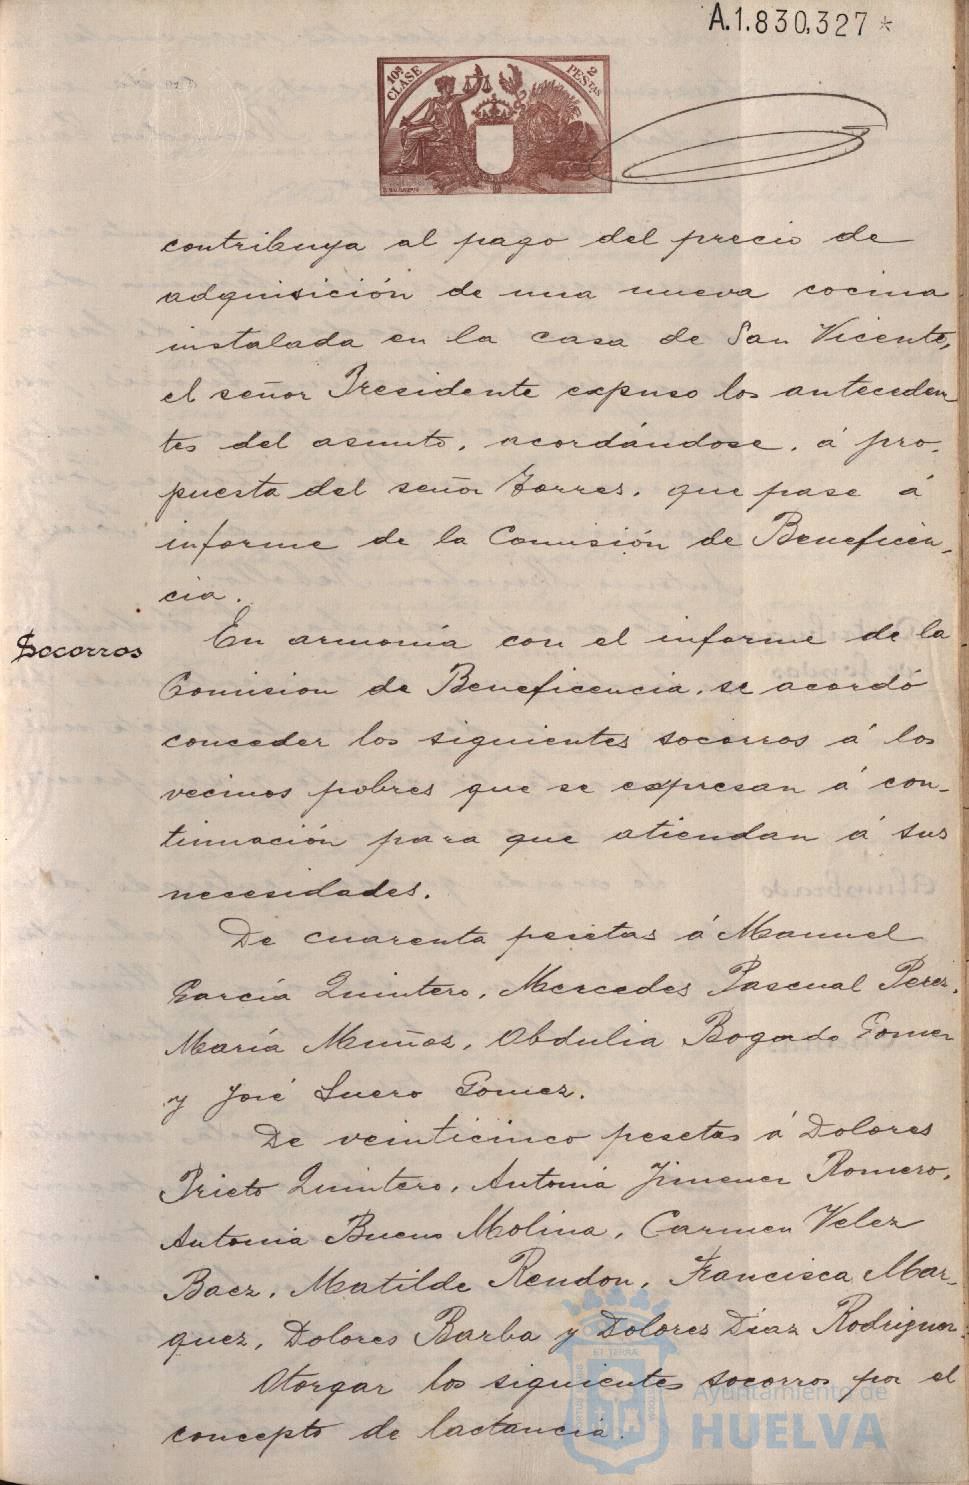 A.1.830,327 *
10ª CLASE
2 PESTAS
contribuya al pago del precio de
adquisición de una nueva cocina
instalada en la casa de San Vicente,
el señor Presidente expuso los anteceden-
tes del asunto, acordándose, á pro-
puesta del señor Torres, que pase á
informe de la Comisión de Beneficen-
cia.
Socorros
En armonía con el informe de la
Comision de Beneficencia, se acordó
conceder los siguientes socorros á los
vecinos pobres que se expresan á con-
tinuación para que atiendan á sus
necesidades.
De cuarenta pesetas á Manuel
García Quintero, Mercedes Pascual Perez,
María Muñoz, Obdulia Bogado Gomez
y José Suero Gomez.
De veinticinco pesetas á Dolores
Prieto Quintero, Antonia Jimenez Romero,
Antonia Bueno Molina, Carmen Velez
Baez, Matilde Rendon, Francisca Mar-
quez, Dolores Barba y Dolores Díaz Rodriguez.
Otorgar los siguientes socorros por el
concepto de lactancia.
Ayuntamiento de
HUELVA